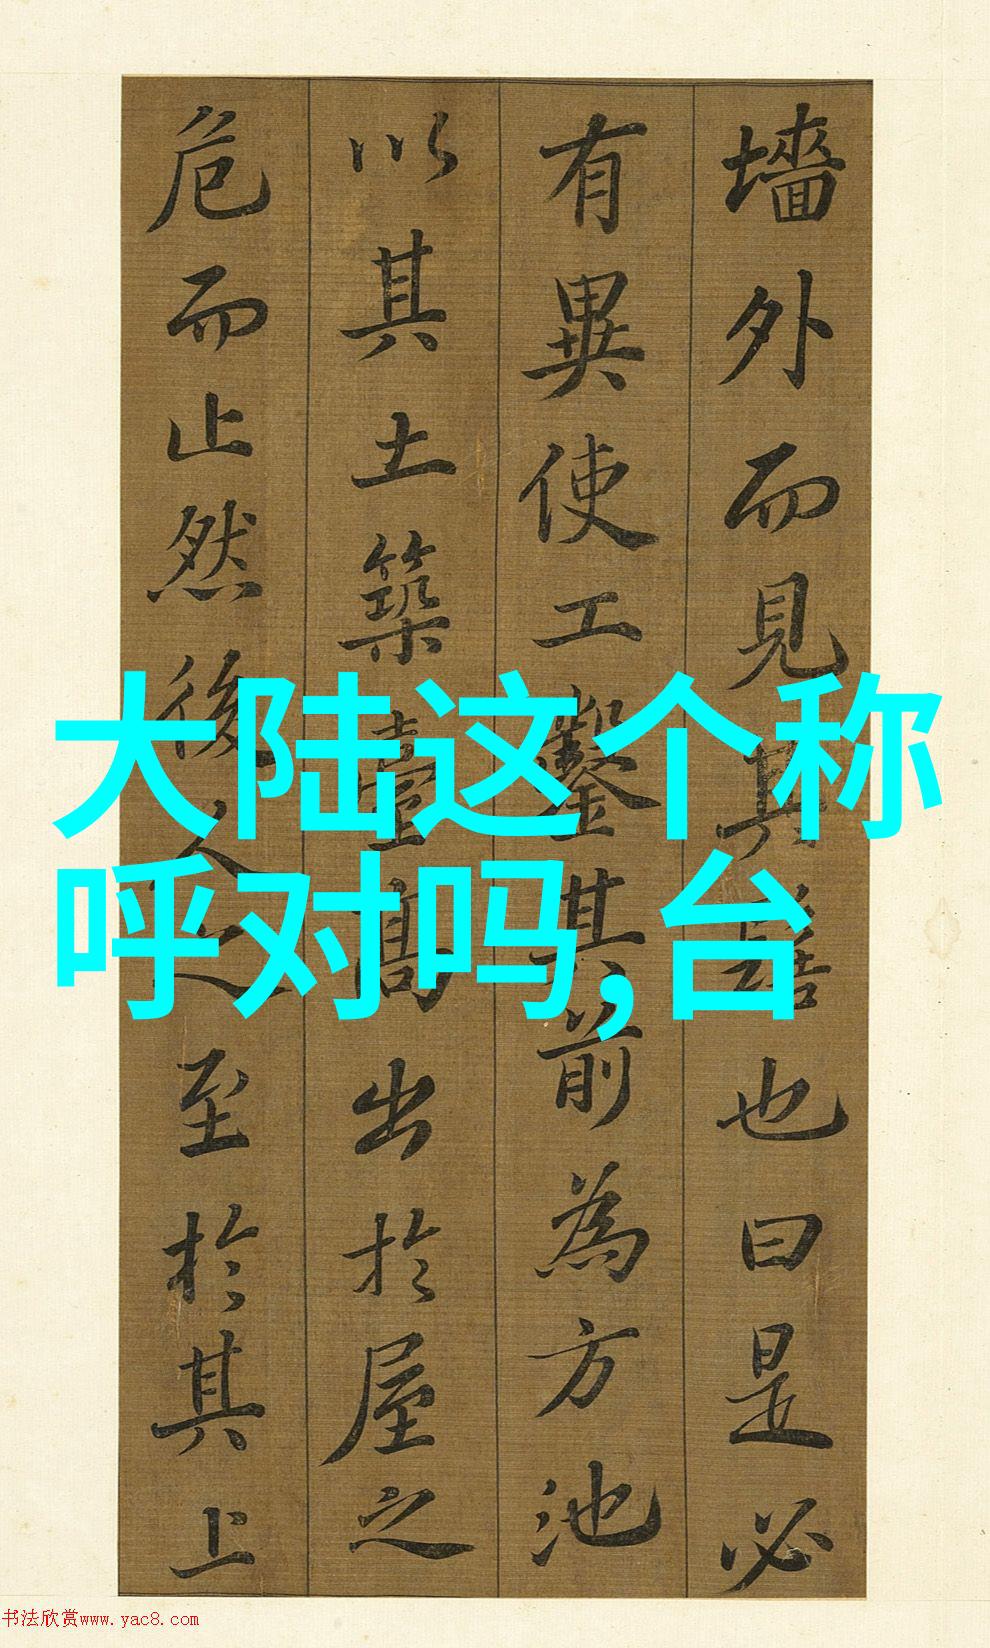 大陆这个称
呼对吗,台
墻外而見其髻也曰是必
有異使工鑿其前為方池
以其土築臺高出於屋之
危而止然後人之至於其上
书法欣赏www.yac8.com